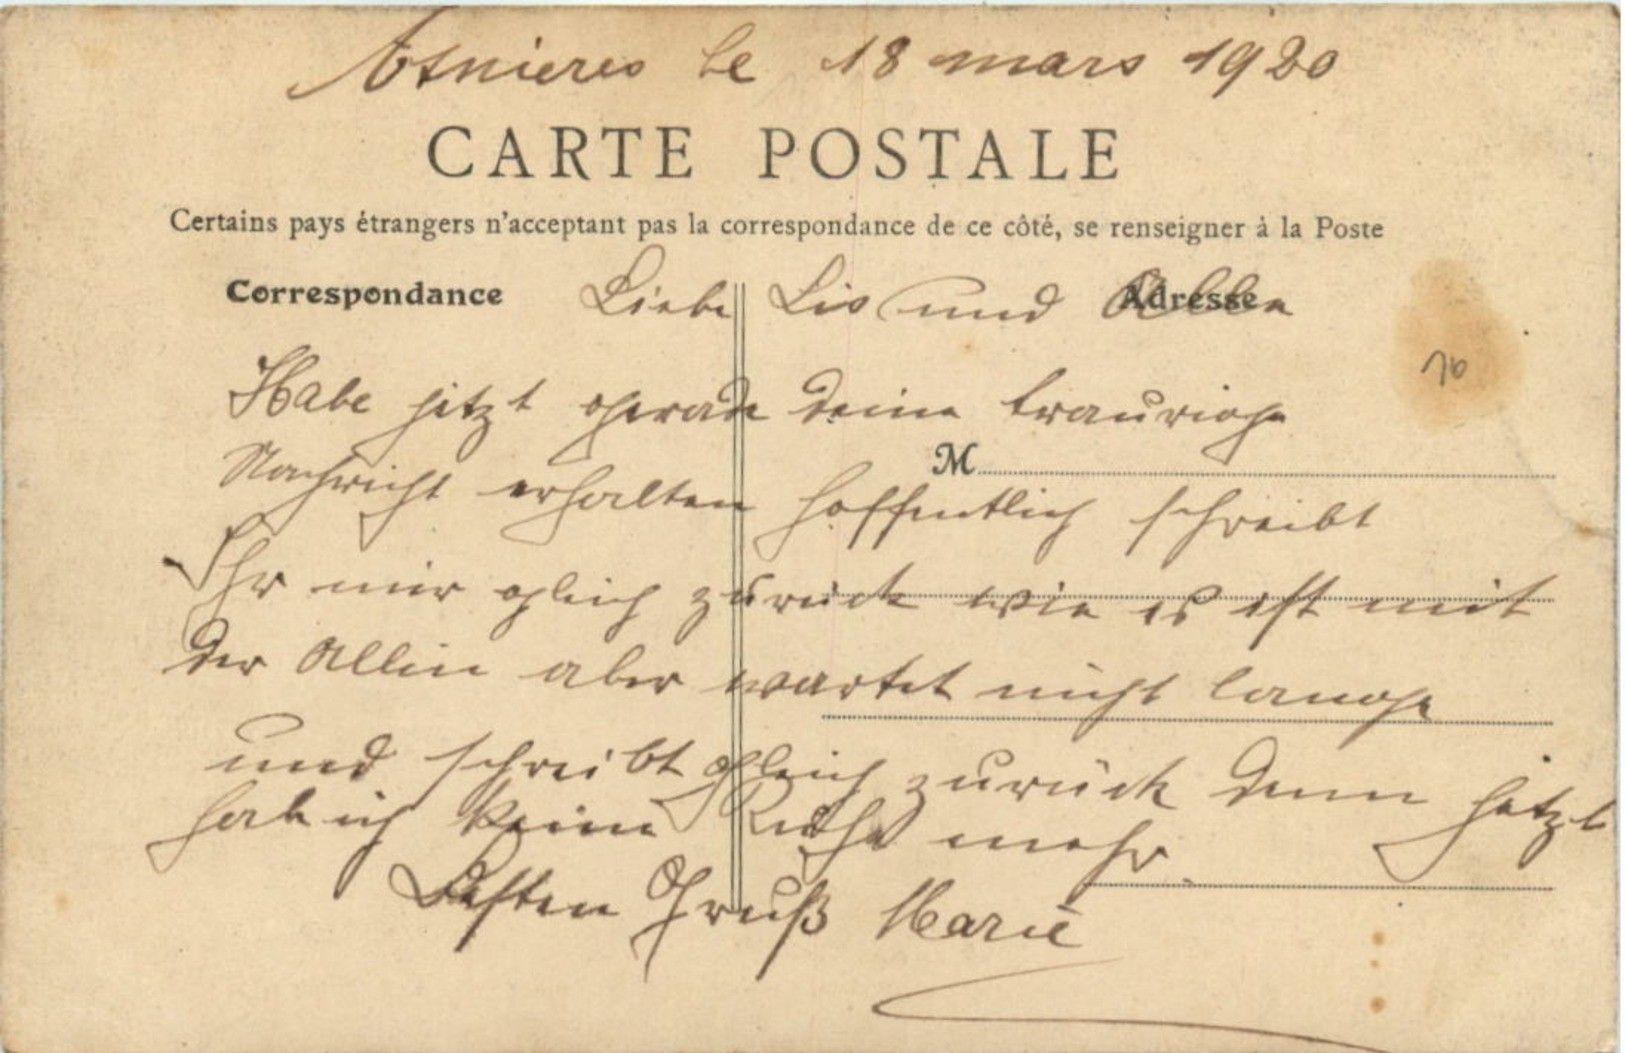 Asnieres le 18 mars 1920
CARTE POSTALE
Certains pays étrangers n'acceptant pas la correspondance de ce côté, se renseigner à la Poste
Correspondance
Adresse
Liebe Lis und
10
Habe jetzt gerade deine traurige
M
Nachricht erhalten hoffentlich schreibt
Ihr mir gleich zurück wie es ist mit
der aber wartet nicht lange
und schreibt gleich zurück denn jetzt
hab ich keine Ruhe mehr.
Besten Gruß Marie